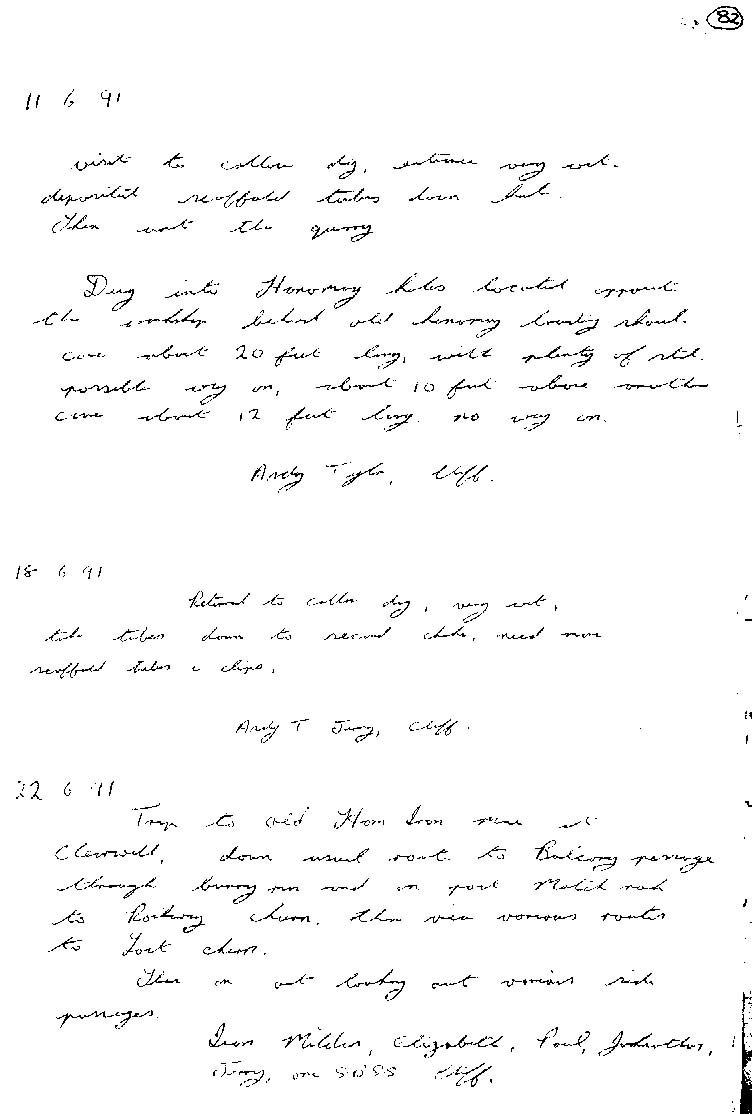 82
11 6 91
visit to collow dig, entrance very wet.
deposited scaffold tubes down hut.
Then went the quarry
Dug into Honomoy holes located opposit
the workshop behind old honomoy located shoul.
cave about 20 feet long, with plenty of still
possible way on, about 10 feet above another
cave about 12 feet long. no way on.
Andy Tyler, Cliff.
18 6 91
Returned to collow dig, very wet,
take tubes down to second choke, need more
scaffold tubes & clips.
Andy T Jerry, Cliff.
22 6 91
Trip to Old Ham Iron mine at
Clearwell, down usual route to Balcony passage
through bunny run and on past
to Railway churn, then via various routes
to Lost churn.
Then on out looking out various side
passages.
Ivan Milder, Elizabeth, Paul, Johnathon,
Jerry, Cliff.